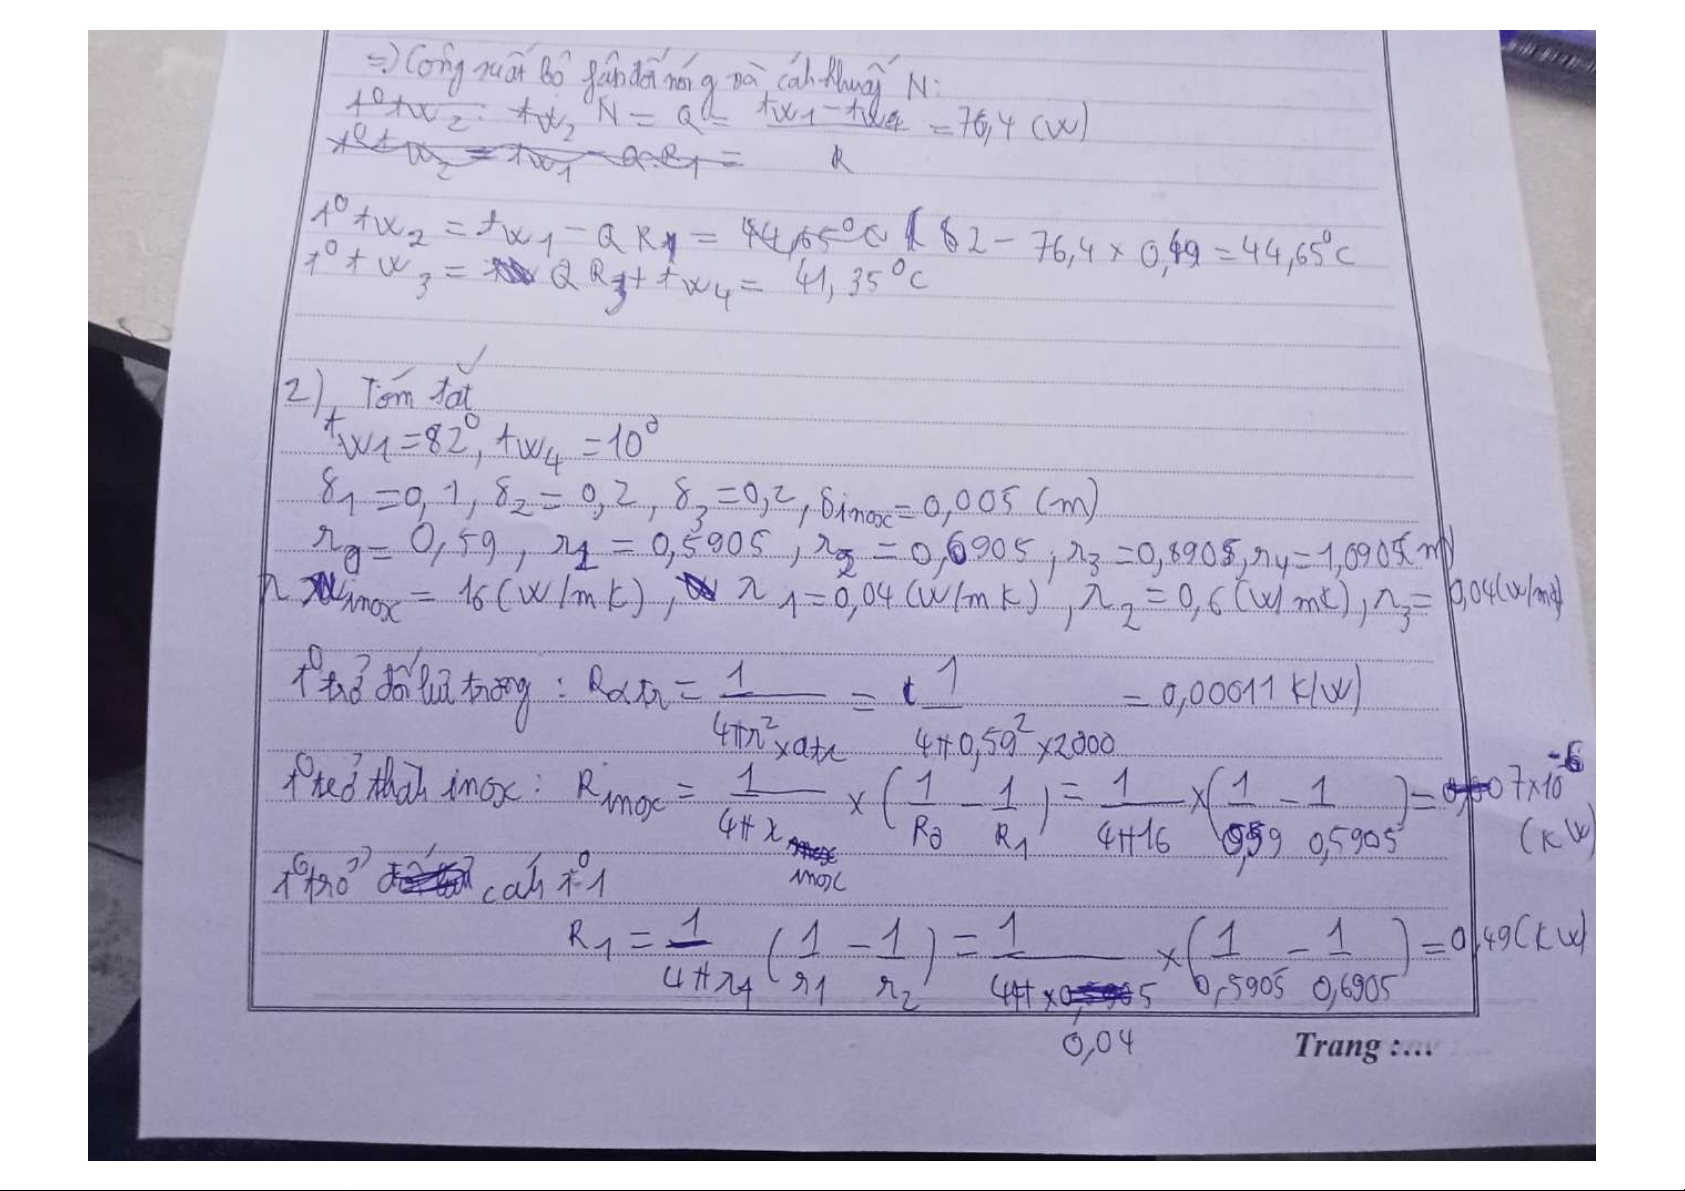 =) Công suất bộ phận đốt nóng và cánh khuấy N:
N = Q = (tw1 - tw4) / R = 76,4 (W)
t° tw2 = tw1 - Q R1 = 82 - 76,4 x 0,49 = 44,65°C
t° tw3 = Q R3 + tw4 = 41,35°C
2) Tóm tắt
tw1 = 82°, tw4 = 10°
δ1 = 0,1, δ2 = 0,2, δ3 = 0,2, δinox = 0,005 (m)
r0 = 0,59, r1 = 0,5905, r2 = 0,6905, r3 = 0,8905, r4 = 1,0905 (m)
λ inox = 16 (W/mK), λ1 = 0,04 (W/mK), λ2 = 0,6 (W/mK), λ3 = 0,04 (W/mK)
t° trở đối lưu trong : Rαtr = 1 / (4πr² x αtr) = 1 / (4π 0,59² x 2000) = 0,00011 K/W)
t° trở thành inox : Rinox = 1 / (4πλ inox) x (1/R0 - 1/R1) = 1 / (4π16) x (1/0,59 - 1/0,5905) = 7x10⁻⁶ (K W)
t° trở cách t° 1
R1 = 1 / (4πλ1) (1/r1 - 1/r2) = 1 / (4π x 0,04) x (1/0,5905 - 1/0,6905) = 0,49 (K W)
Trang :...